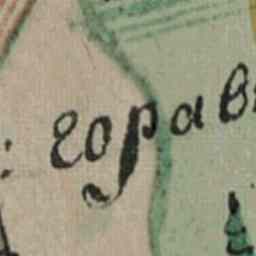 : горав